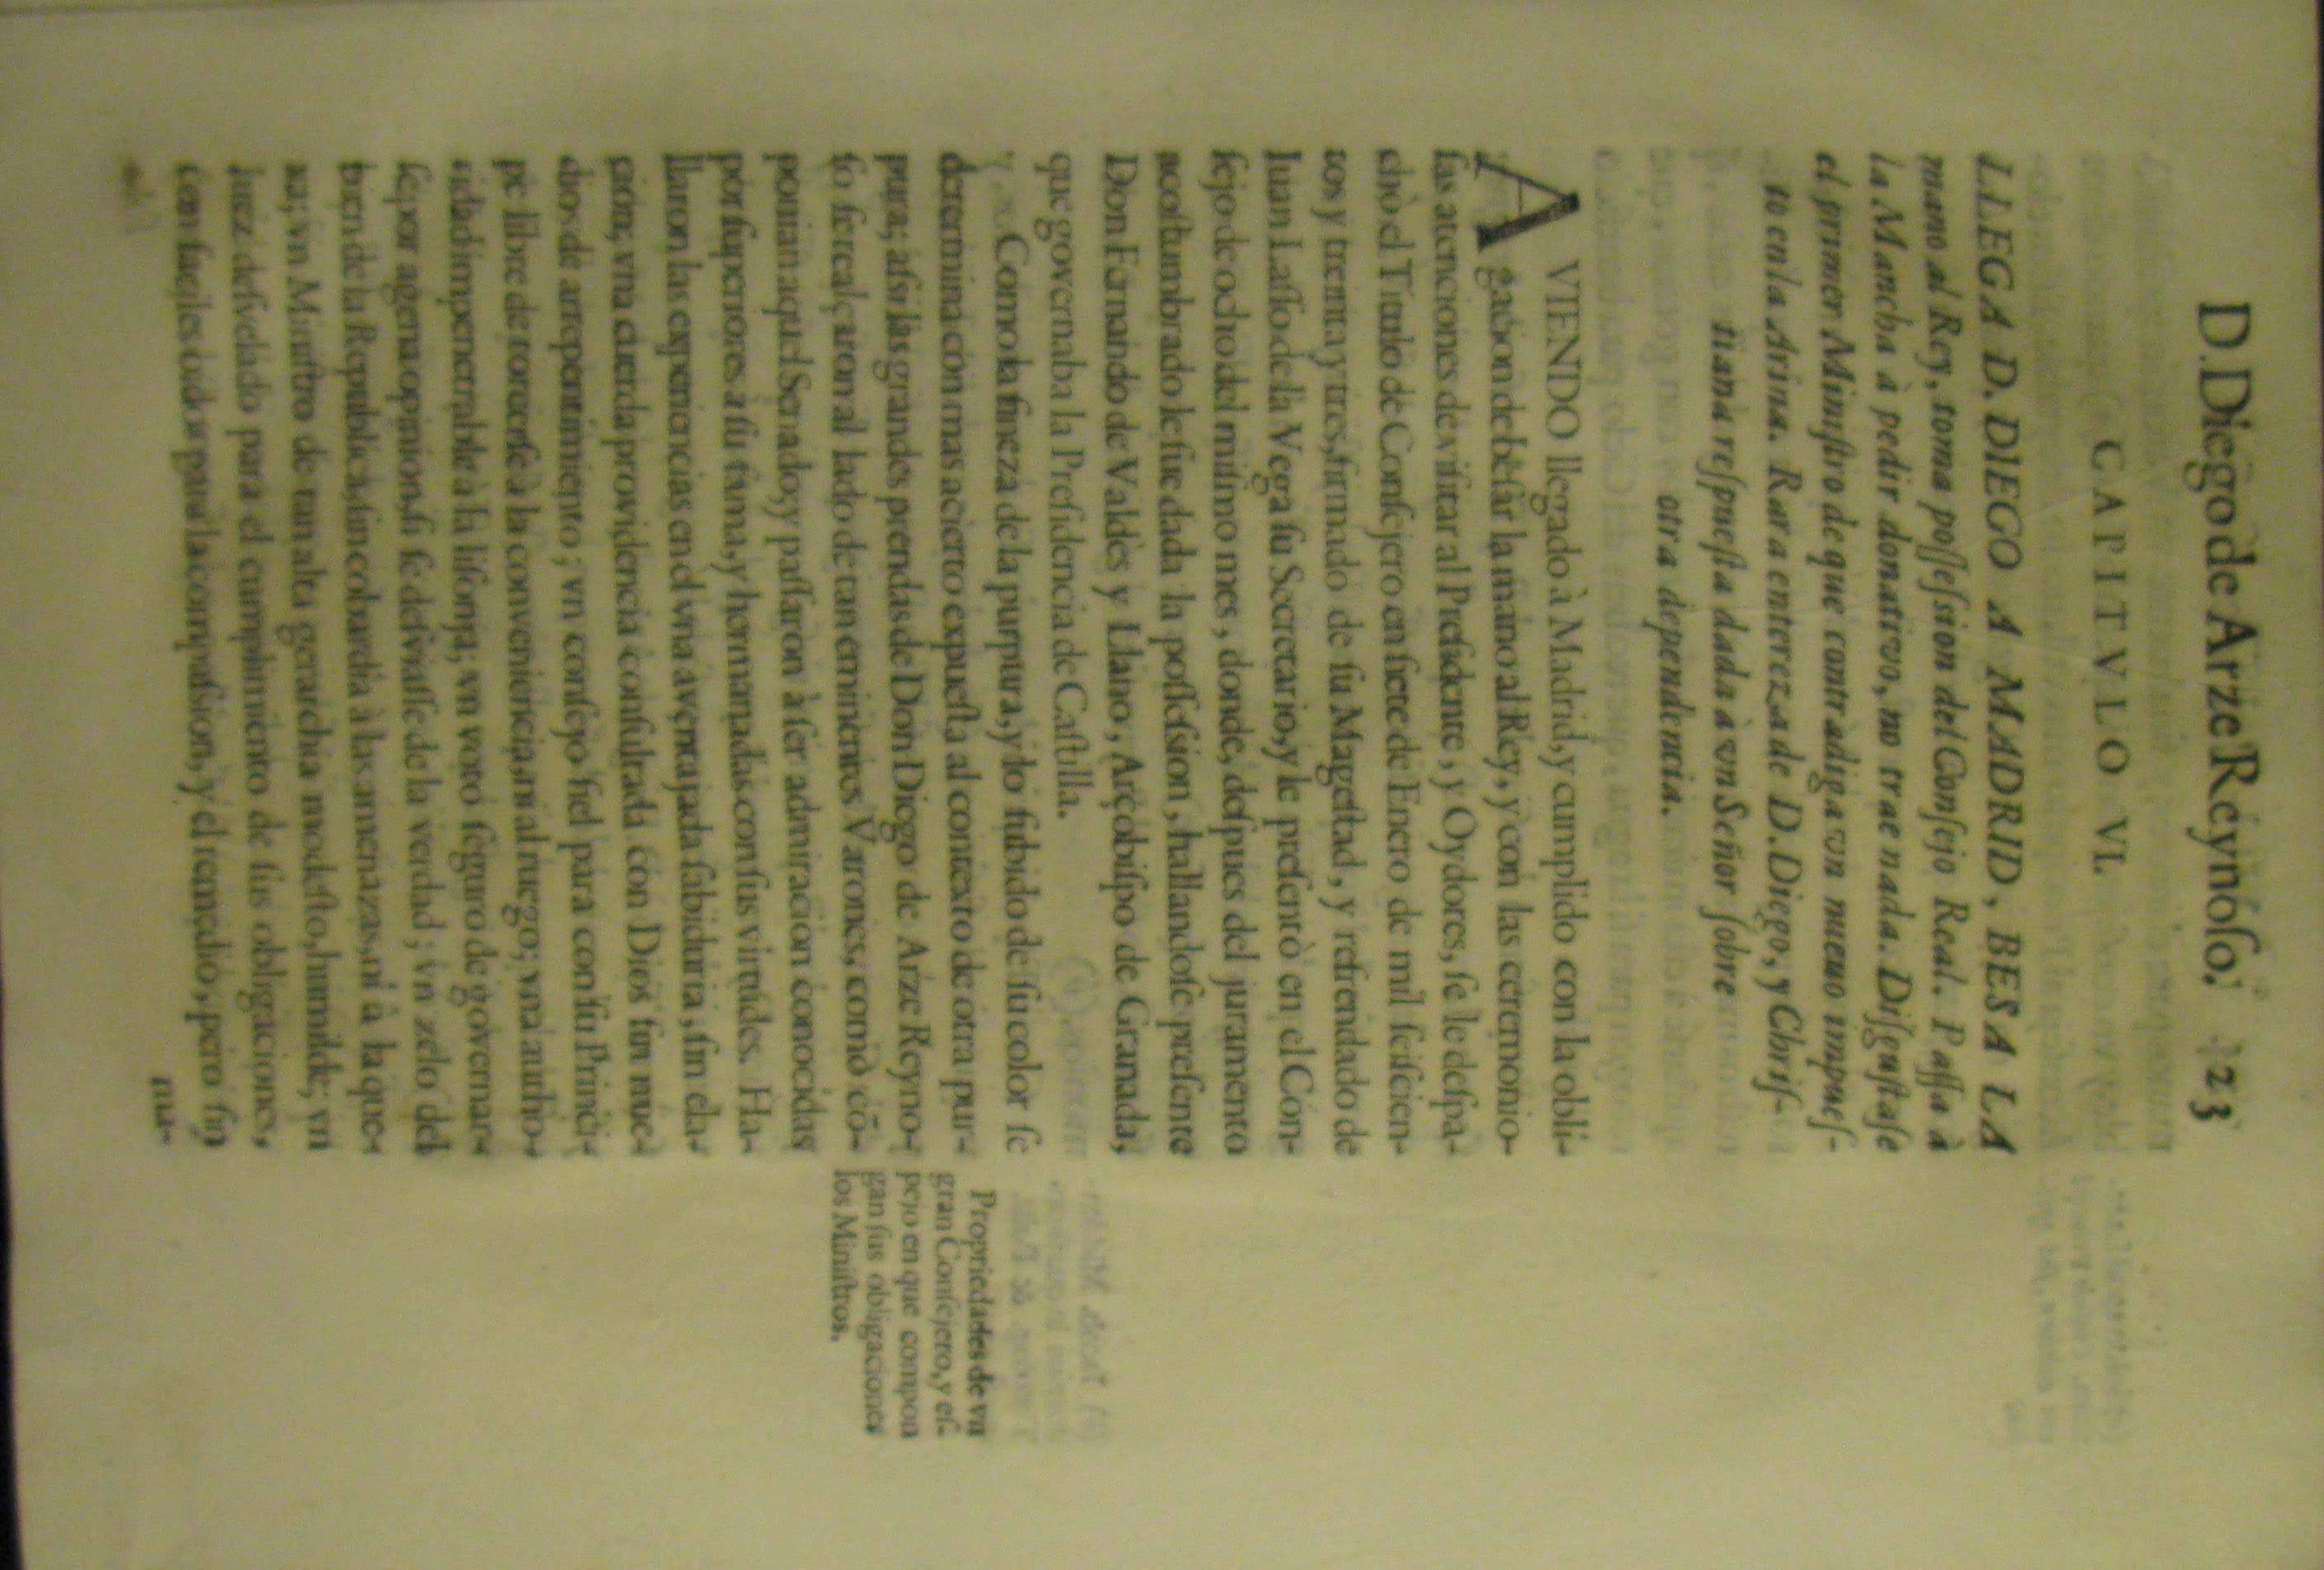 D. Diego de Arze Reynoſo. 123
CAPITVLO VI.
LLEGA D. DIEGO A MADRID, BESA LA
mano al Rey, toma poſſeſsion del Conſejo Real. Paſſa à
la Mancha à pedir donativo, no trae nada. Diſguſtaſe
el primer Miniſtro de que contradiga vn nuevo impueſ-
to en la Arina. Rara entereza de D. Diego, y Chriſ-
tiana reſpueſta dada à vn Señor ſobre
otra dependencia.
AVIENDO llegado à Madrid, y cumplido con la obli-
gacion de beſar la mano al Rey, y con las ceremonio-
ſas atenciones de viſitar al Preſidente, y Oydores, ſe le deſpa-
chò el Titulo de Conſejero en ſiete de Enero de mil ſeiſcien-
tos y treinta y tres, firmado de ſu Mageſtad, y refrendado de
Iuan Laſſo de la Vega ſu Secretario, y le preſentò en el Con-
ſejo de ocho del miſmo mes, donde, deſpues del juramento
acoſtumbrado le fue dada la poſſeſsion, hallandoſe preſente
Don Fernando de Valdès y Llano, Arçobiſpo de Granada,
que governaba la Preſidencia de Caſtilla.
Como la fineza de la purpura, y lo ſubido de ſu color ſe
determina con mas acierto expueſta al contexto de otra pur-
pura; aſsi las grandes prendas de Don Diego de Arze Reyno-
ſo ſe realçaron al lado de tan eminentes Varones, como cõ-
ponian aquel Senado, y paſſaron à ſer admiracion conocidas
por ſuperiores a ſu fama, y hermanadas con ſus virtudes. Ha-
llaron las experiencias en el vna aventajada ſabiduria, ſin ela-
cion; vna cuerda providencia conſultada con Dios ſin mie-
dios de arrepentimiento; vn conſejo fiel para con ſu Princi-
pe libre de torcerſe à la conveniencia, ni al ruego; vna autho-
ridad impenetrable à la liſonja; vn voto ſeguro de governar-
ſe por agena opinion, ſi ſe deſviaſſe de la verdad; vn zelo del
bien de la Republica, ſin cobardia à las amenazas, ni à la que-
xa; vn Miniſtro de tan alta gerarchia modeſto, humilde; vn
Iuez deſvelado para el cumplimiento de ſus obligaciones,
con faciles oidos para la compaſsion, y el remedio, pero ſin
ma-
Propriedades de vn
gran Conſejero, y eſ-
pejo en que compon
gan ſus obligaciones
los Miniſtros.